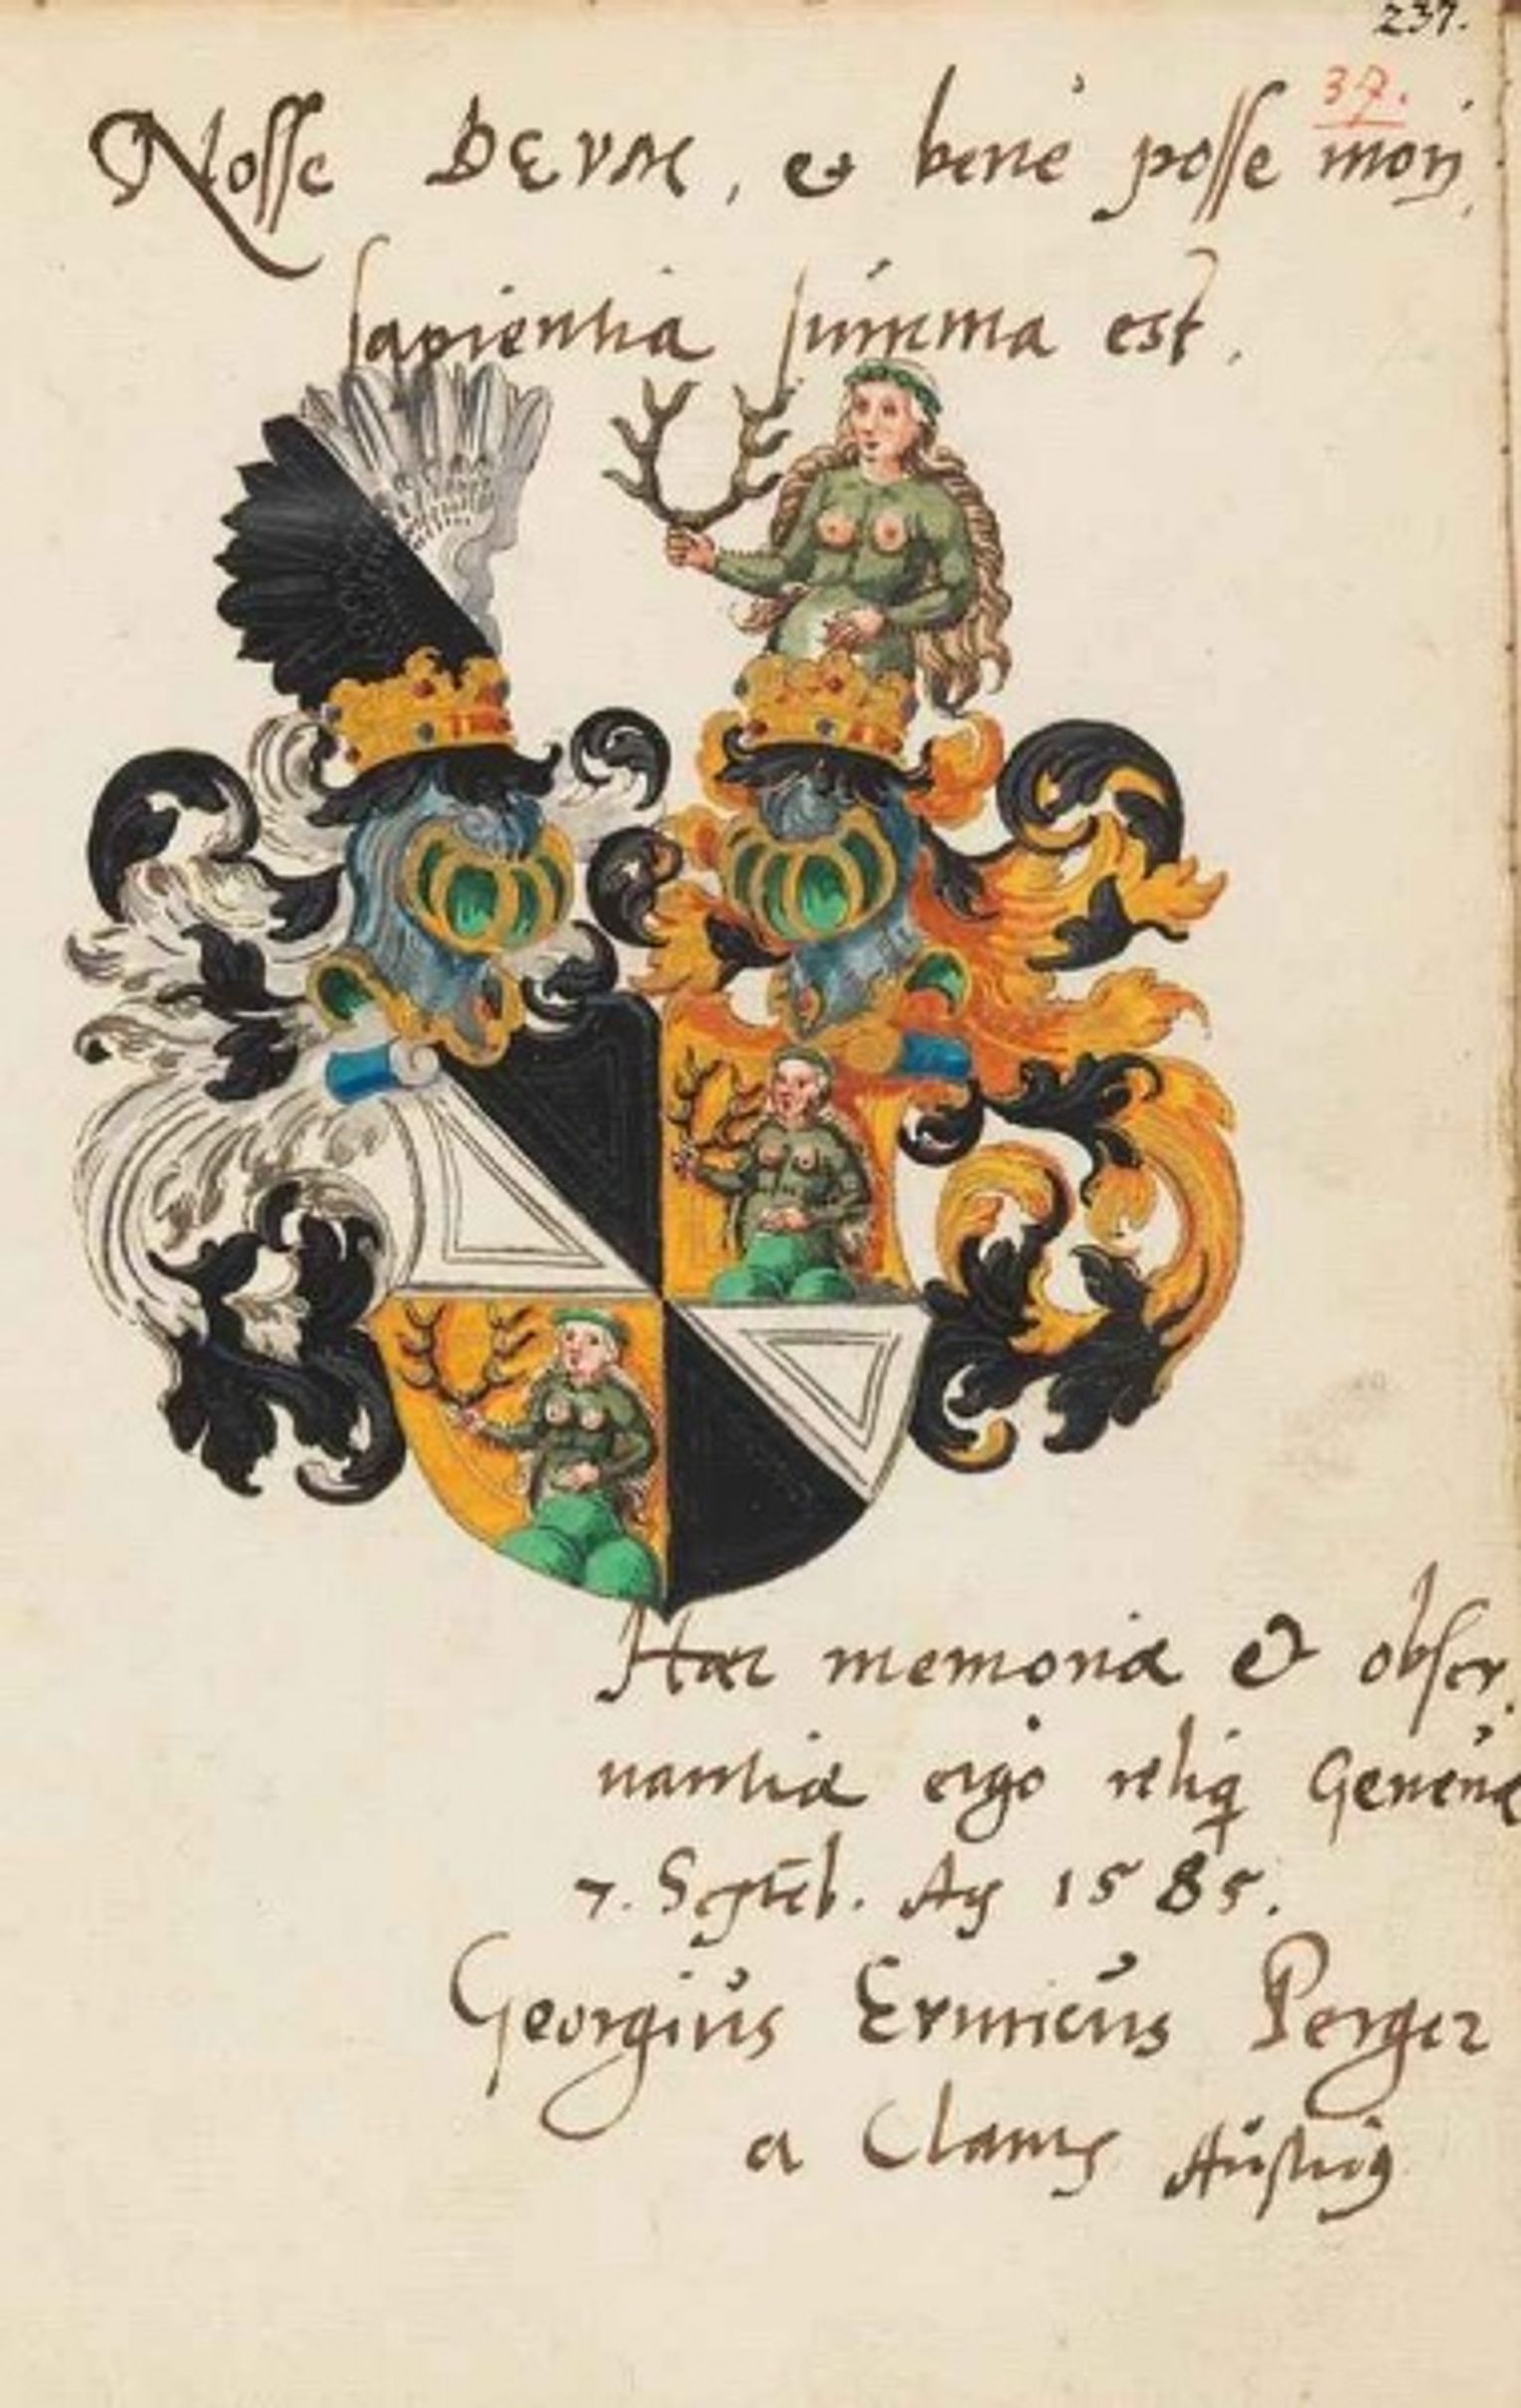 237.
37.
Nosse DEVM, & benè posse mori,
sapientia summa est.
Haec memoriae & obser,
uantiae ergò reliq Geneuae
7. Septēb. Aº 1585.
Georgius Perger
a Clam Austriꝰ